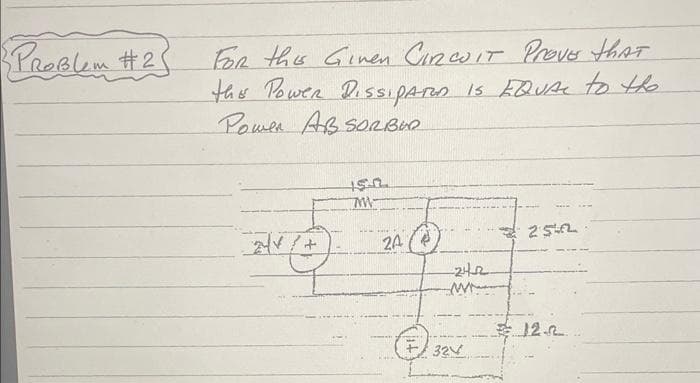 PROBLEM #2
FOR this Given CIRCUIT Prove thAT
the Power DissipATED is EQUAL to the
Power ABSORBED
15Ω
24V +
2A
25Ω
24Ω
12Ω
+ 32V